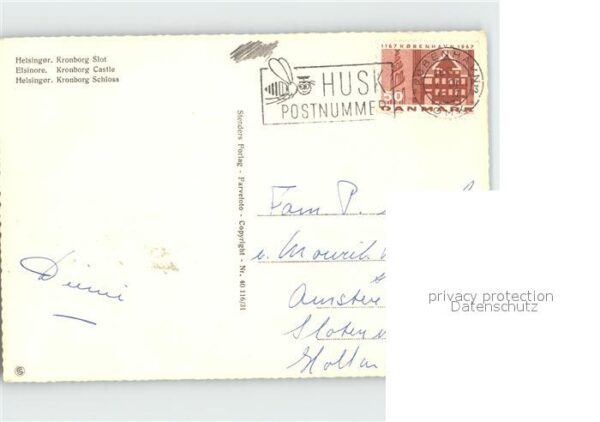 Helsingør. Kronborg Slot
Elsinore. Kronborg Castle
Helsingør. Kronborg Schloss
HUSK
POSTNUMMER
1167 KØBENHAVN 1967
50
DANMARK
KØBENHAVN
Stenders Forlag - Farvefoto - Copyright - Nr. 40 116/31
Fam P.
Amster
Sloten
Hollan
privacy protection
Datenschutz